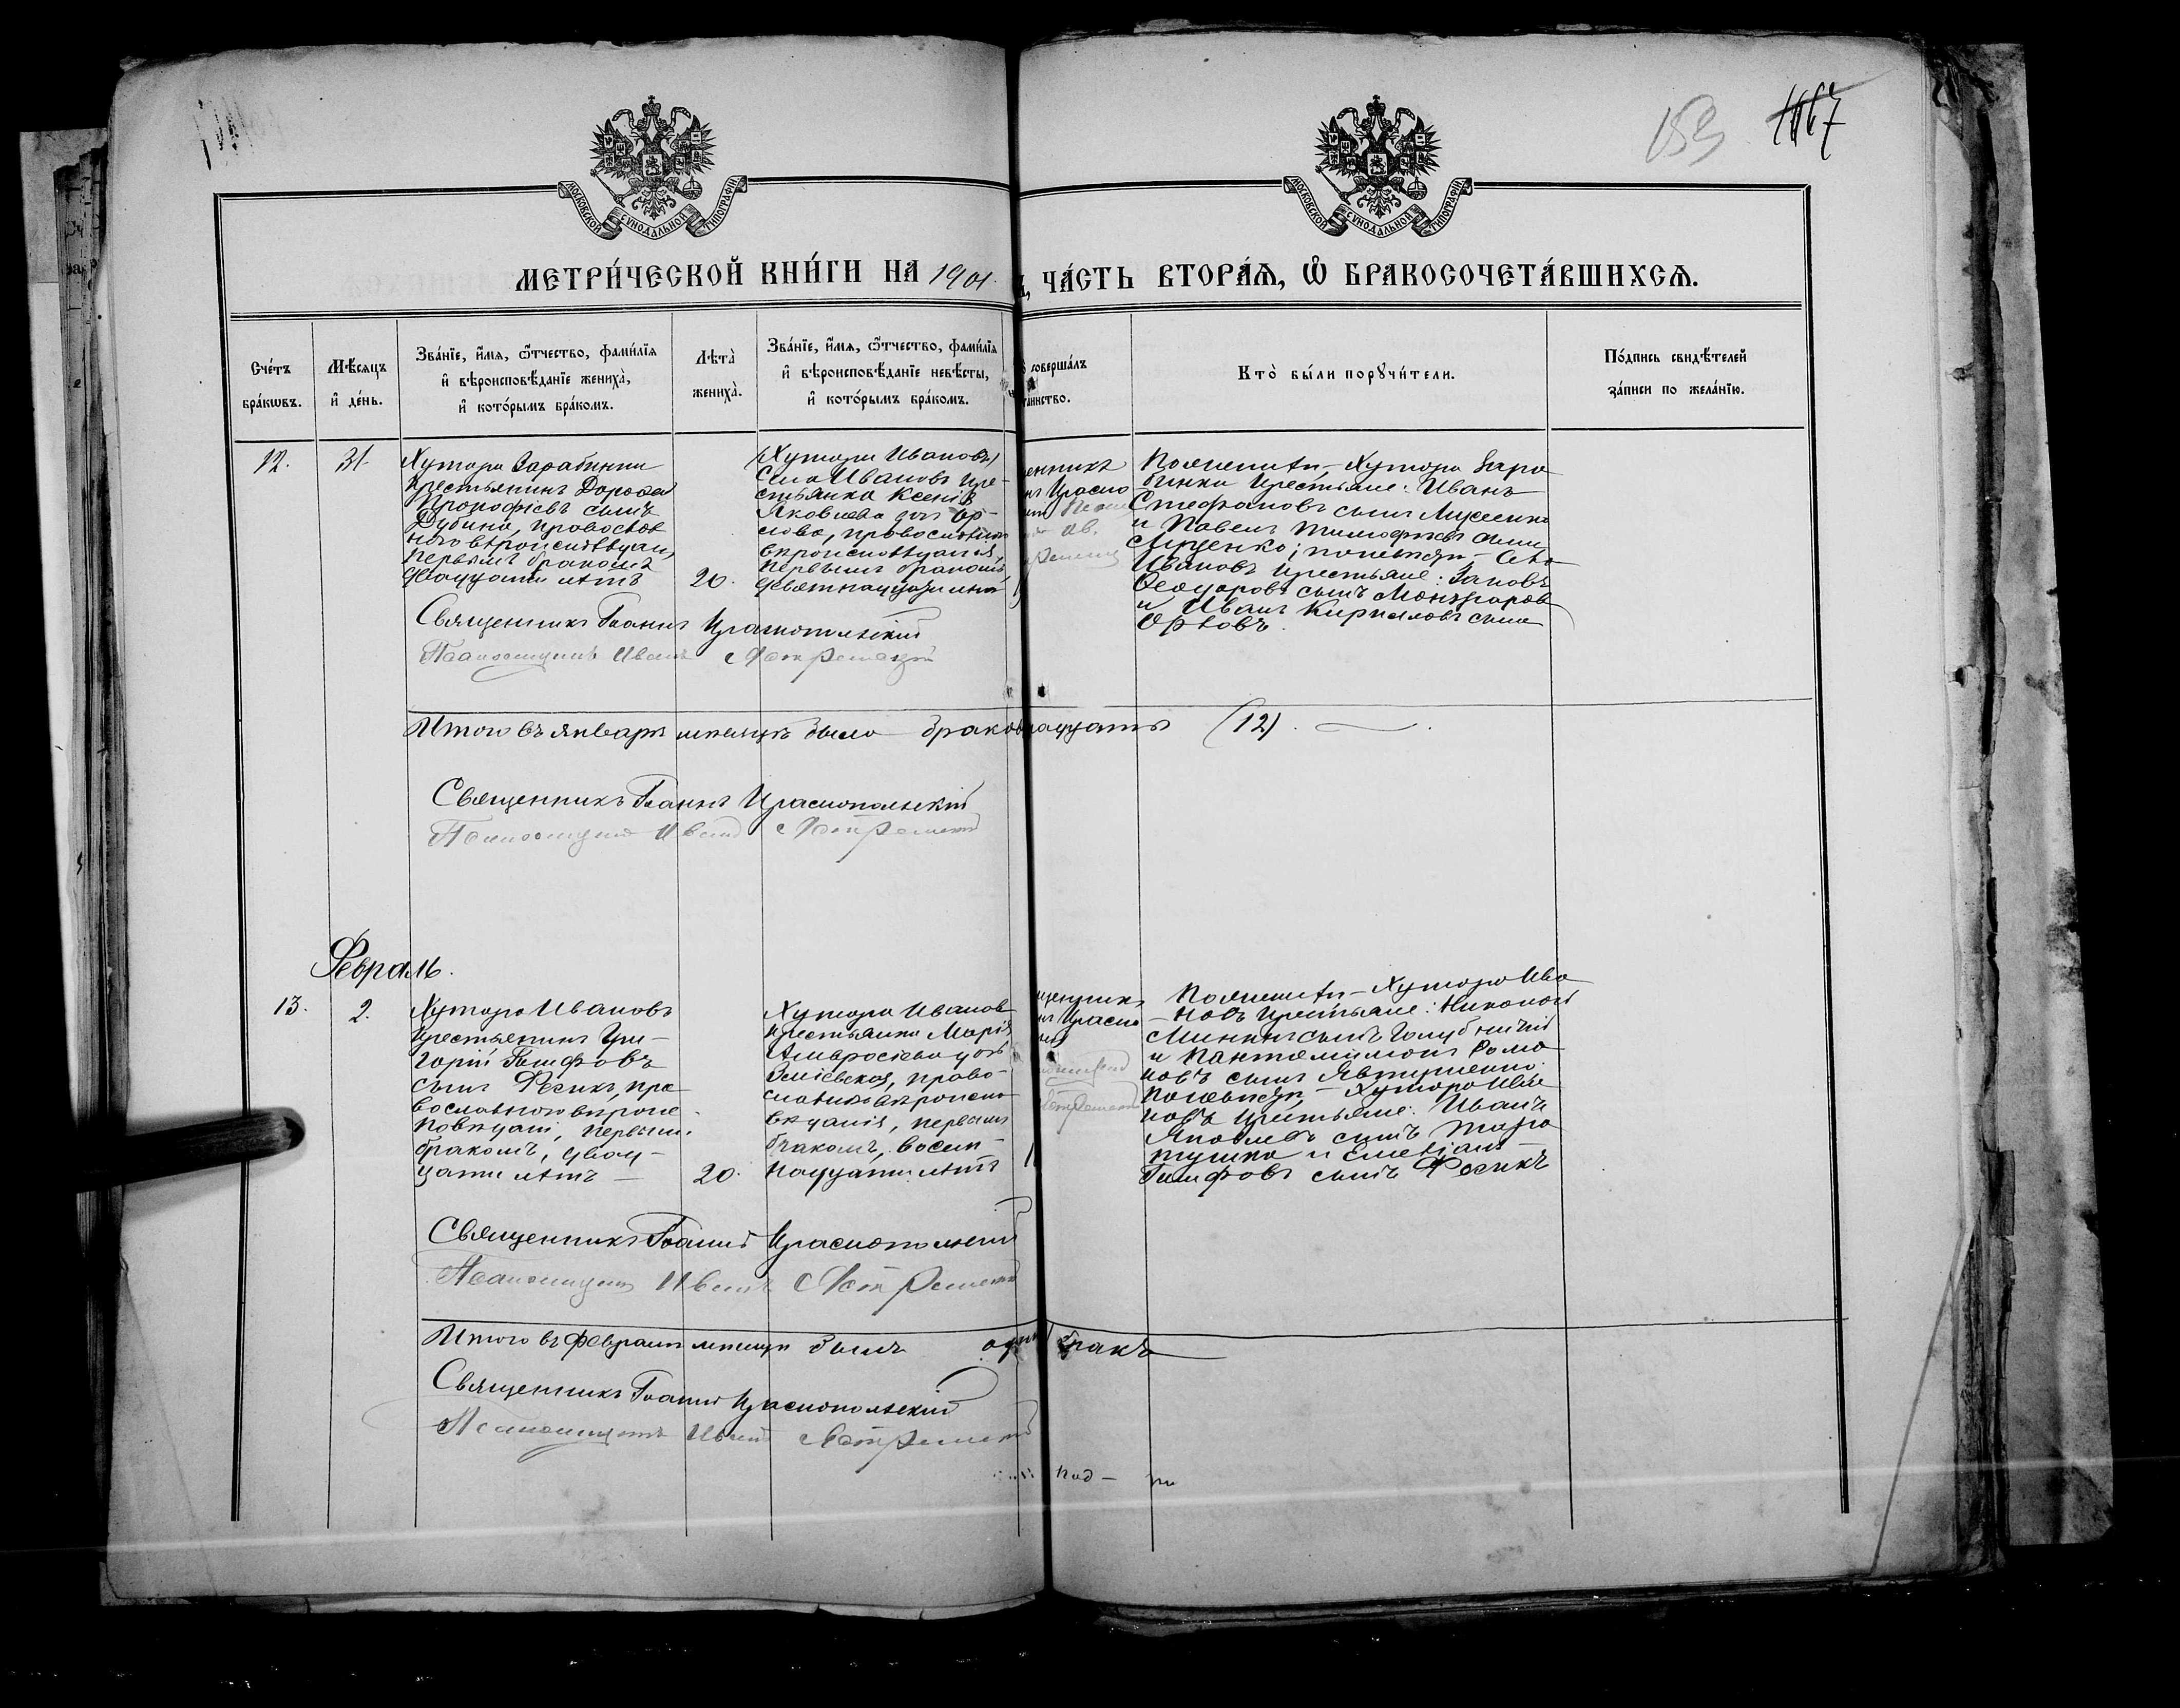 153 1167
МОСКОВСКОЙ СѴНОДАЛЬНОЙ ТИПОГРАФІИ
МОСКОВСКОЙ СѴНОДАЛЬНОЙ ТИПОГРАФІИ
МЕТРИ́ЧЕСКОЙ КНИ́ГИ НА 1901.
ЧА́СТЬ ВТОРА́Ѧ, Ѽ БРАКОСОЧЕТА́ВШИХСѦ.
Сче́тъ
бра́кѡвъ.
Мѣ́сяцъ
и҆ де́нь.
Зва́нїе, и҆́мѧ, ѻ҆́тчество, фами́лїѧ
и҆ вѣроисповѣ́данїе жениха̀,
и҆ кото́рымъ бра́комъ.
Лѣта̀
жениха̀.
Зва́нїе, и҆́мѧ, ѻ҆́тчество, фами́лїѧ
и҆ вѣроисповѣ́данїе невѣ́сты,
и҆ кото́рымъ бра́комъ.
соверша́лъ
таинство.
Кто̀ бы́ли порꙋчи́тели.
По́дпись свидѣ́телей
за́писи по жела́нїю.
12.
31.
Хутора Зарабинки
крестьянинъ Дорофей
Прокофіевъ сынъ
Дубина, православ
наго вѣроисповѣданія,
первымъ бракомъ
двадцати лѣтъ
20.
Хутора Иванов
Ивановъ кре-
стьянка Ксенія
Яковлева дочь Ор-
лова, православнаго
вѣроисповѣданія,
первымъ бракомъ,
девятнадцати лѣтъ
енникъ
Красно
По женихѣ – Хутора Зара
бинки крестьяне: Иванъ
Стефановъ сынъ
и Павелъ Тимофѣевъ сынъ
; по невѣстѣ –
Ивановъ крестьяне:
Ѳеодоровъ сынъ
и Иванъ Кириловъ сынъ
Орловъ.
Священникъ Іоаннъ Краснопольскій
Псаломщикъ Иванъ
Итого въ январѣ мѣсяцѣ было браковъ двѣнадцать (12).
Священникъ Іоаннъ Краснопольскій
Псаломщикъ Иванъ
Февраль.
13.
2.
Хутора Ивановъ
крестьянинъ Гри-
горій Іосифовъ
сынъ Фесикъ, пра
вославнаго вѣроис
повѣданія, первым
бракомъ, двад-
цати лѣтъ –
20.
Хутора Иванов
крестьянка Марія
Амвросіева дочь
Зміевская, право-
славнаго вѣроиспо
вѣданія, первымъ
бракомъ, восем-
надцати лѣтъ
щенникъ
Красно
По женихѣ – Хутора Ива
новъ крестьяне:
Мининъ сынъ Голубничій
и Пантелимонъ Рома
новъ сынъ Явтушенко.
По невѣстѣ – Хутора Ива
новъ крестьяне: Иванъ
Яковлевъ сынъ Тара
тушка и Емеліанъ
Іосифовъ сынъ Фесикъ
Священникъ Іоаннъ Краснопольскій
Псаломщикъ Иванъ
Итого въ февралѣ мѣсяцѣ былъ одинъ бракъ
Священникъ Іоаннъ Краснопольскій
Псаломщикъ Иванъ